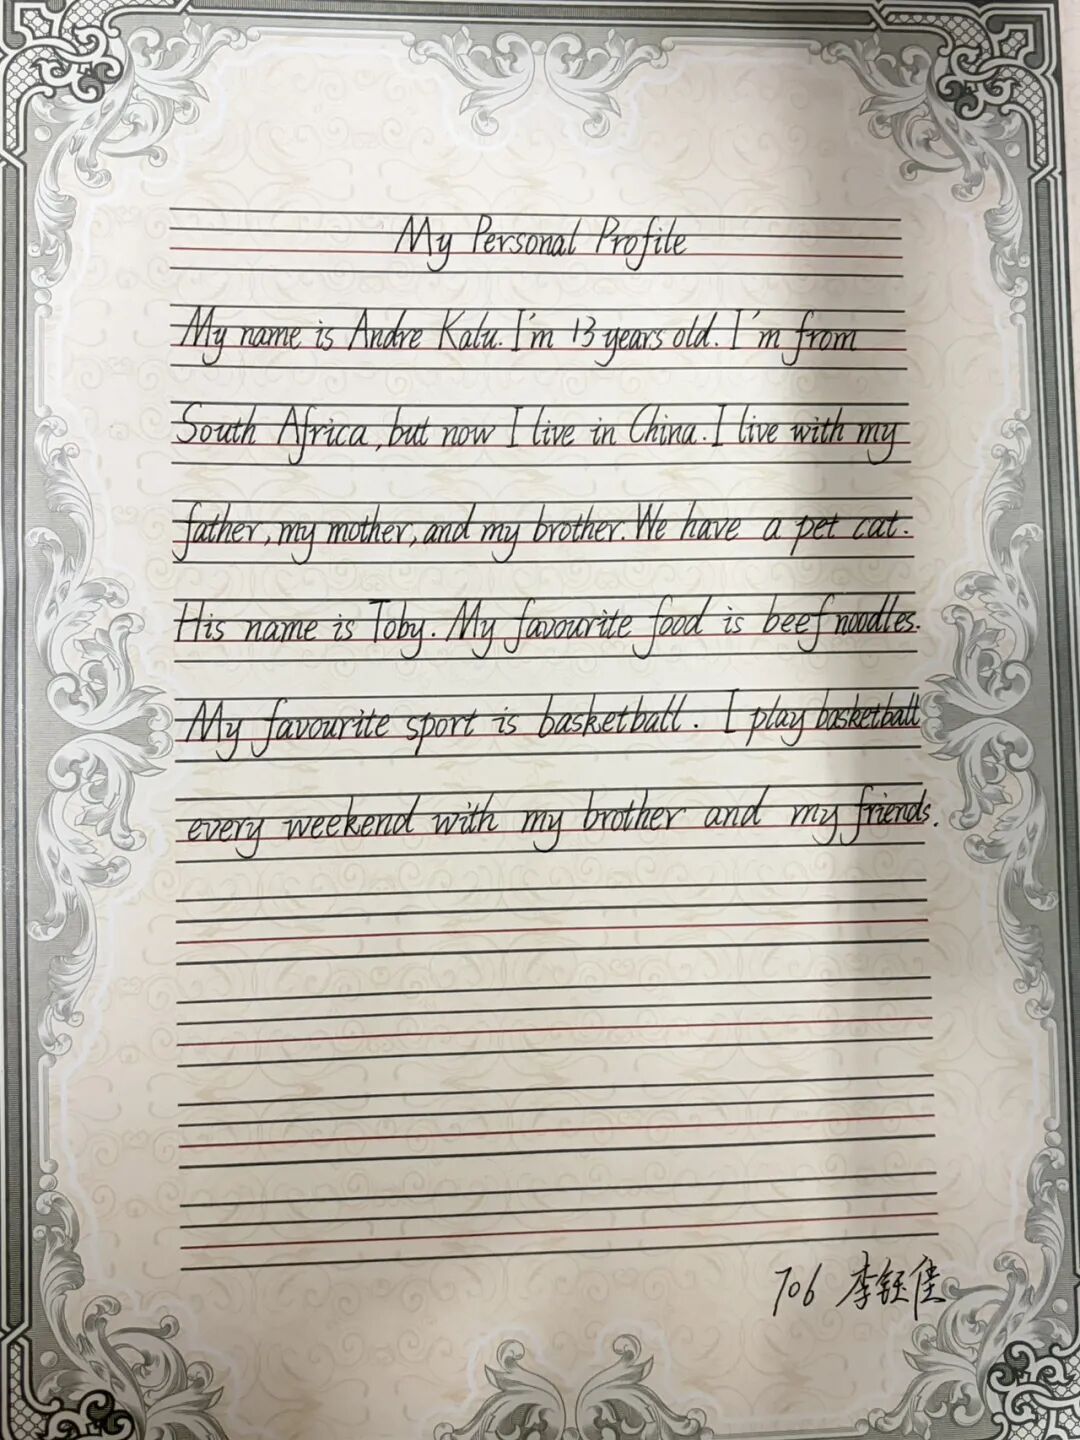 My Personal Profile
My name is Andre Kalu. I'm 13 years old. I'm from
South Africa, but now I live in China. I live with my
father, my mother, and my brother. We have a pet cat.
His name is Toby. My favourite food is beef noodles.
My favourite sport is basketball. I play basketball
every weekend with my brother and my friends.
706 李钰佳